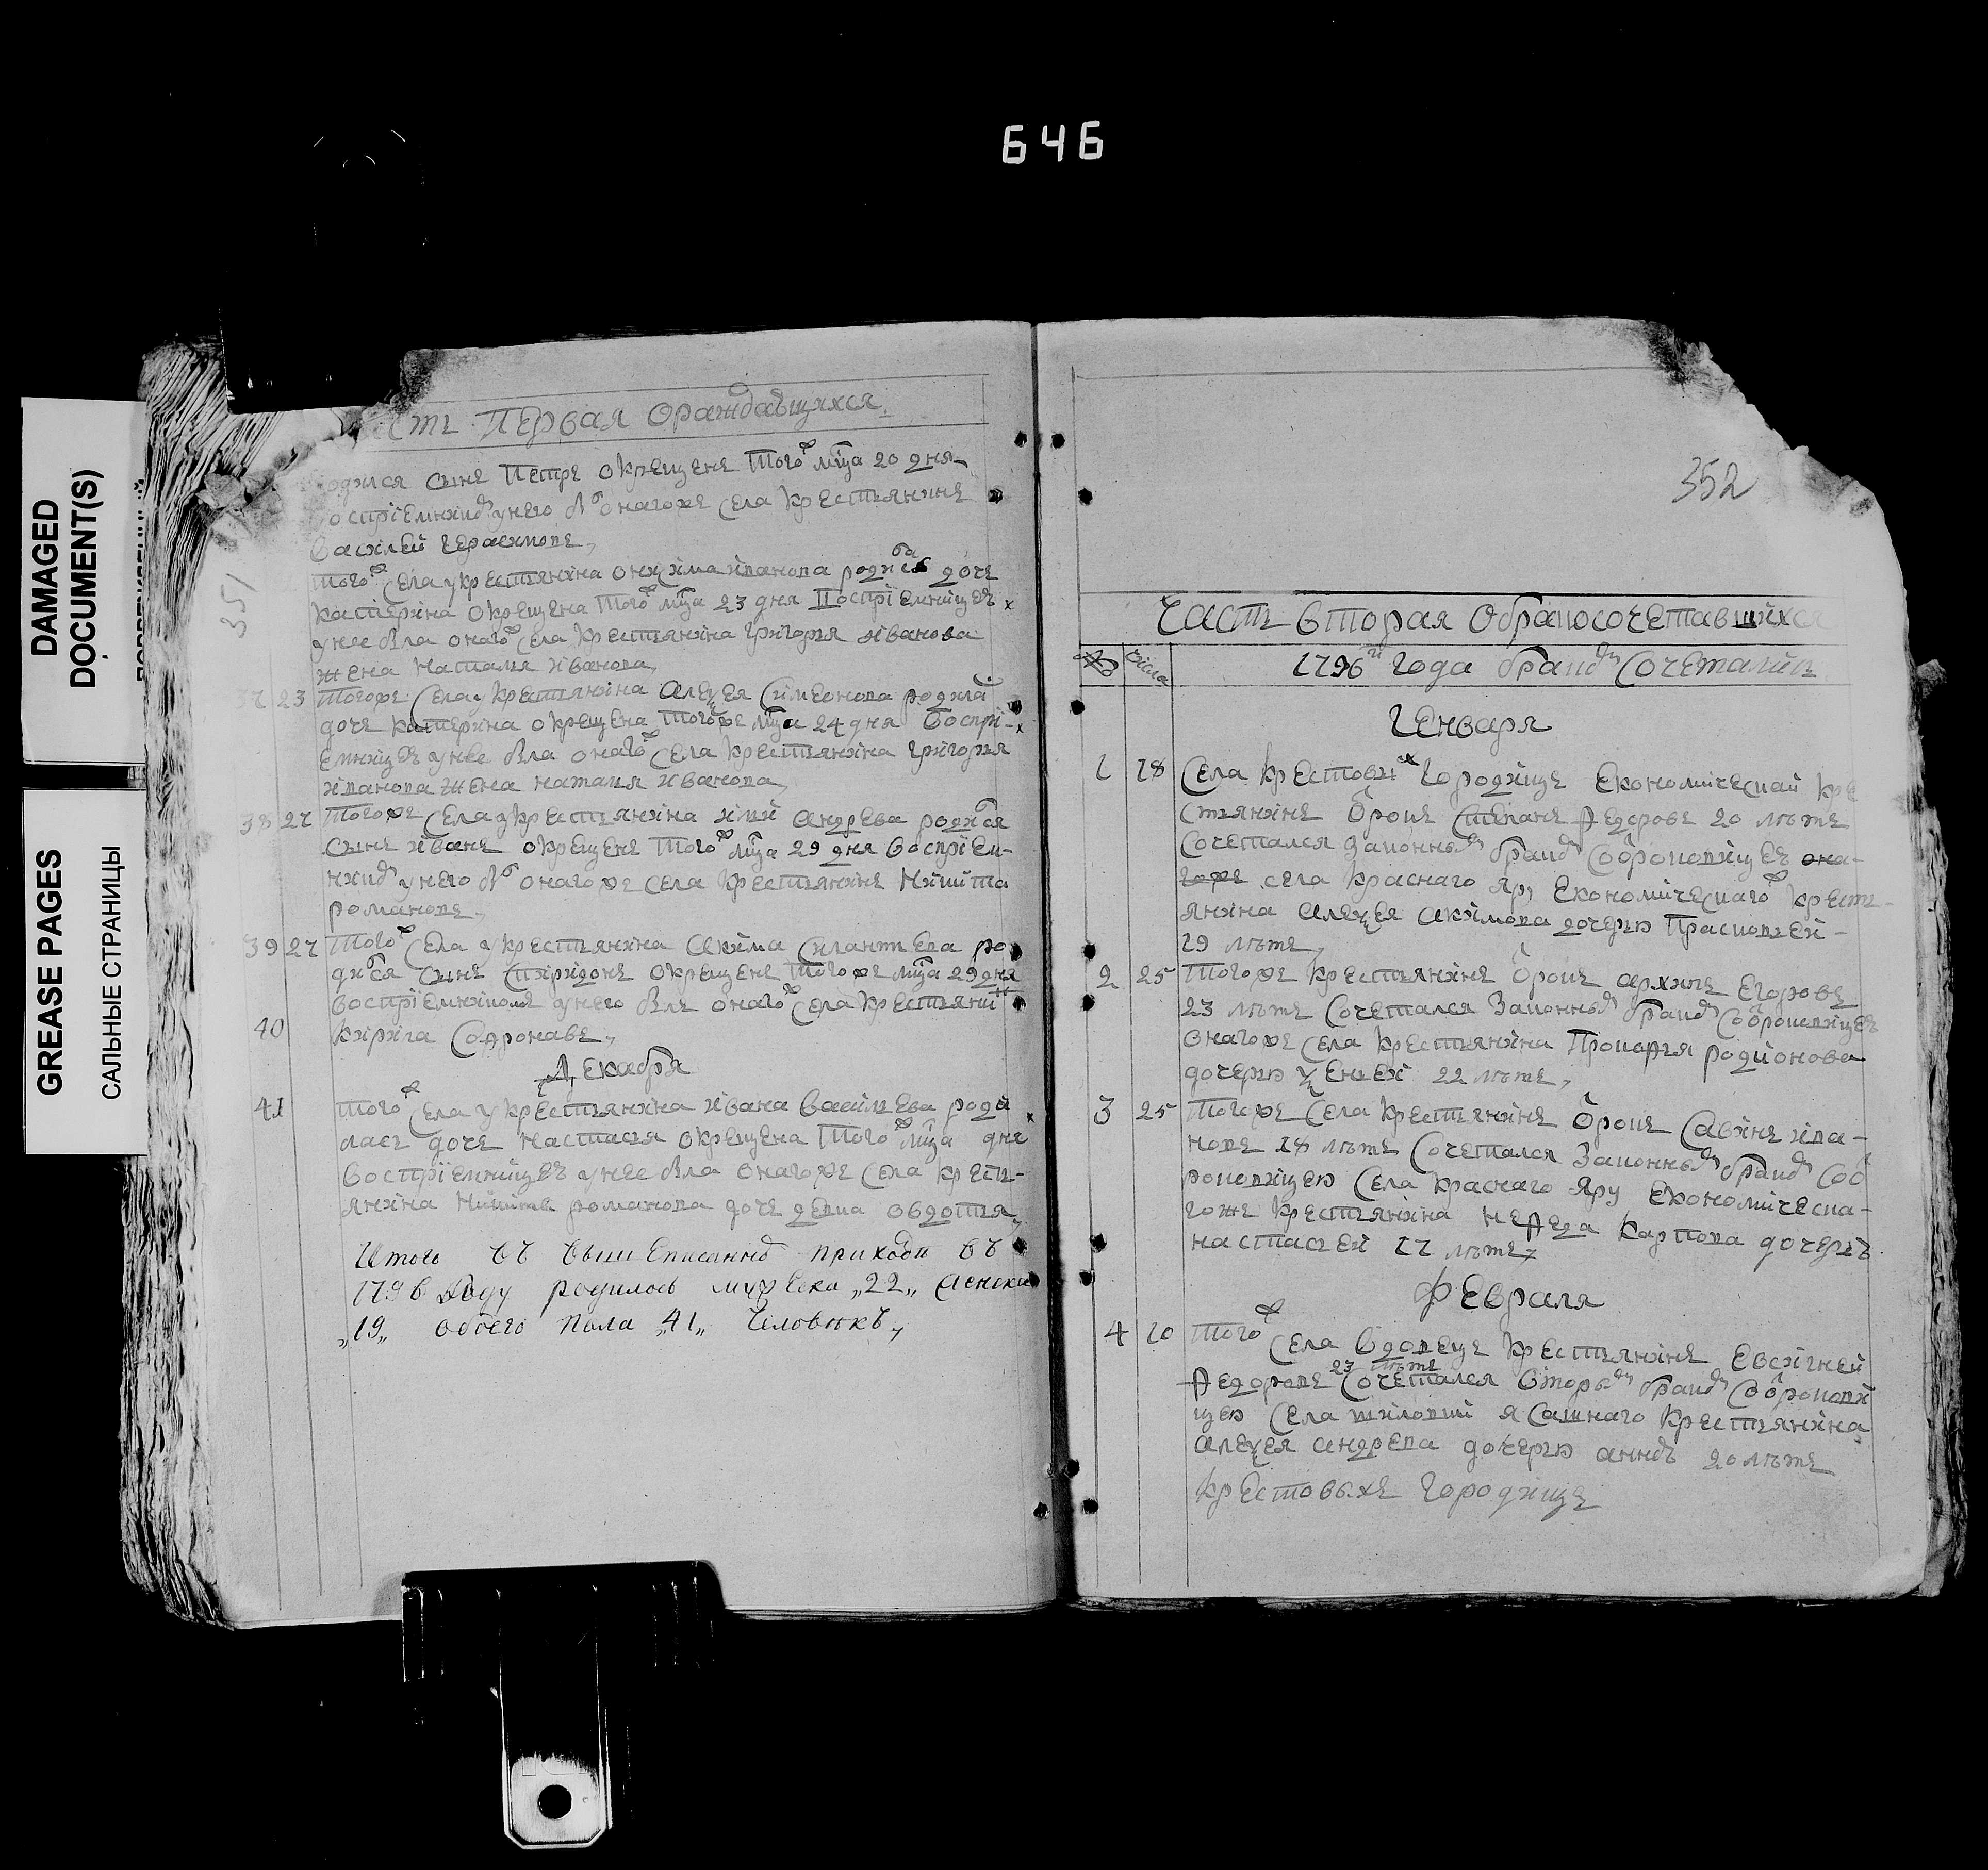 646
DAMAGED
DOCUMENT(S)
GREASE PAGES
САЛЬНЫЕ СТРАНИЦЫ
351
сть Первая Ораждавшихся
одился сынъ Петръ окрещенъ того ж мца 20 дня
оспрiемникъ у него бъ онагоже села крестьянинъ
Василей Герасимовъ,
того ж села у крестьянина Онисима Иванова родилась дочь
Катерина окрещена того ж мца 23 дня воспрiемницею
у нее была онаго ж села крестьянина Григорья Иванова
жена Наталья Иванова,
37 23 тогоже села у крестьянина Алеѯея Симеонова родила
дочь Катерина окрещена тогоже мца 24 дня воспрi-
емницею у нее была онаго ж села крестьянина Григорья
Иванова жена Наталья Иванова,
38 27 тогоже села у крестьянина Андрева родился
сынъ Иванъ окрещенъ того ж мца 29 дня воспрiем-
никъ у него бъ онагоже села крестьянинъ Никита
Романовъ,
39 27 того ж села у крестьянина Акима Силантьева ро
дился сынъ Спиридонъ окрещенъ тогоже мца 29 дня
воспрiемникомъ у него былъ онаго ж села крестьянинъ
40 Кирила Софронавъ,
Декабря
41 того ж села у крестьянина Ивана Васильева роди
лась дочь Настасья окрещена того ж мца дня
воспрiемницею у нее была онагоже села крестьянина
Никиты Романова дочь девка Овдотья,
Итого въ вышеписанномъ приходе въ
1796 году родилось мужеска „22„ женска
„19„ обоего пола „41„ человекъ,
352
Часть вторая Обракосочетавшихся
№ числа 1796 года бракомъ сочетались
Генваря
1 18 Села Крестовых Городищъ економической кре
стьянинъ отрокъ Степанъ Ѳедоровъ 20 летъ
сочетался законнымъ бракомъ со отроковицею она-
гоже села Краснаго Яру економическаго крестъ-
янина Алеѯея Акимова дочерью Прасковьей
19 летъ,
2 25 тогоже крестьянинъ отрокъ Архипъ Егоровъ
23 летъ сочетался законнымъ бракомъ со отроковицею
онагоже села крестьянина Прокофья Родионова
дочерью Ѯеньей 22 летъ,
3 25 тогоже села крестьянинъ отрокъ Савинъ Ива-
новъ 18 летъ сочетался законнымъ бракомъ со от
роковицею села Краснаго Яру економическа-
гоже крестьянина Неѳеда Карпова дочерью
Настасьей 17 летъ,
Февраля
4 10 того ж села вдовецъ крестьянинъ Евсигней
Ѳедоровъ 23 летъ сочетался вторымъ бракомъ со отрокови
цею села Шиловки ясашнаго крестьянина
Алеѯея Андрева дочерью Анной 20 летъ
Крестовыхъ Городищъ